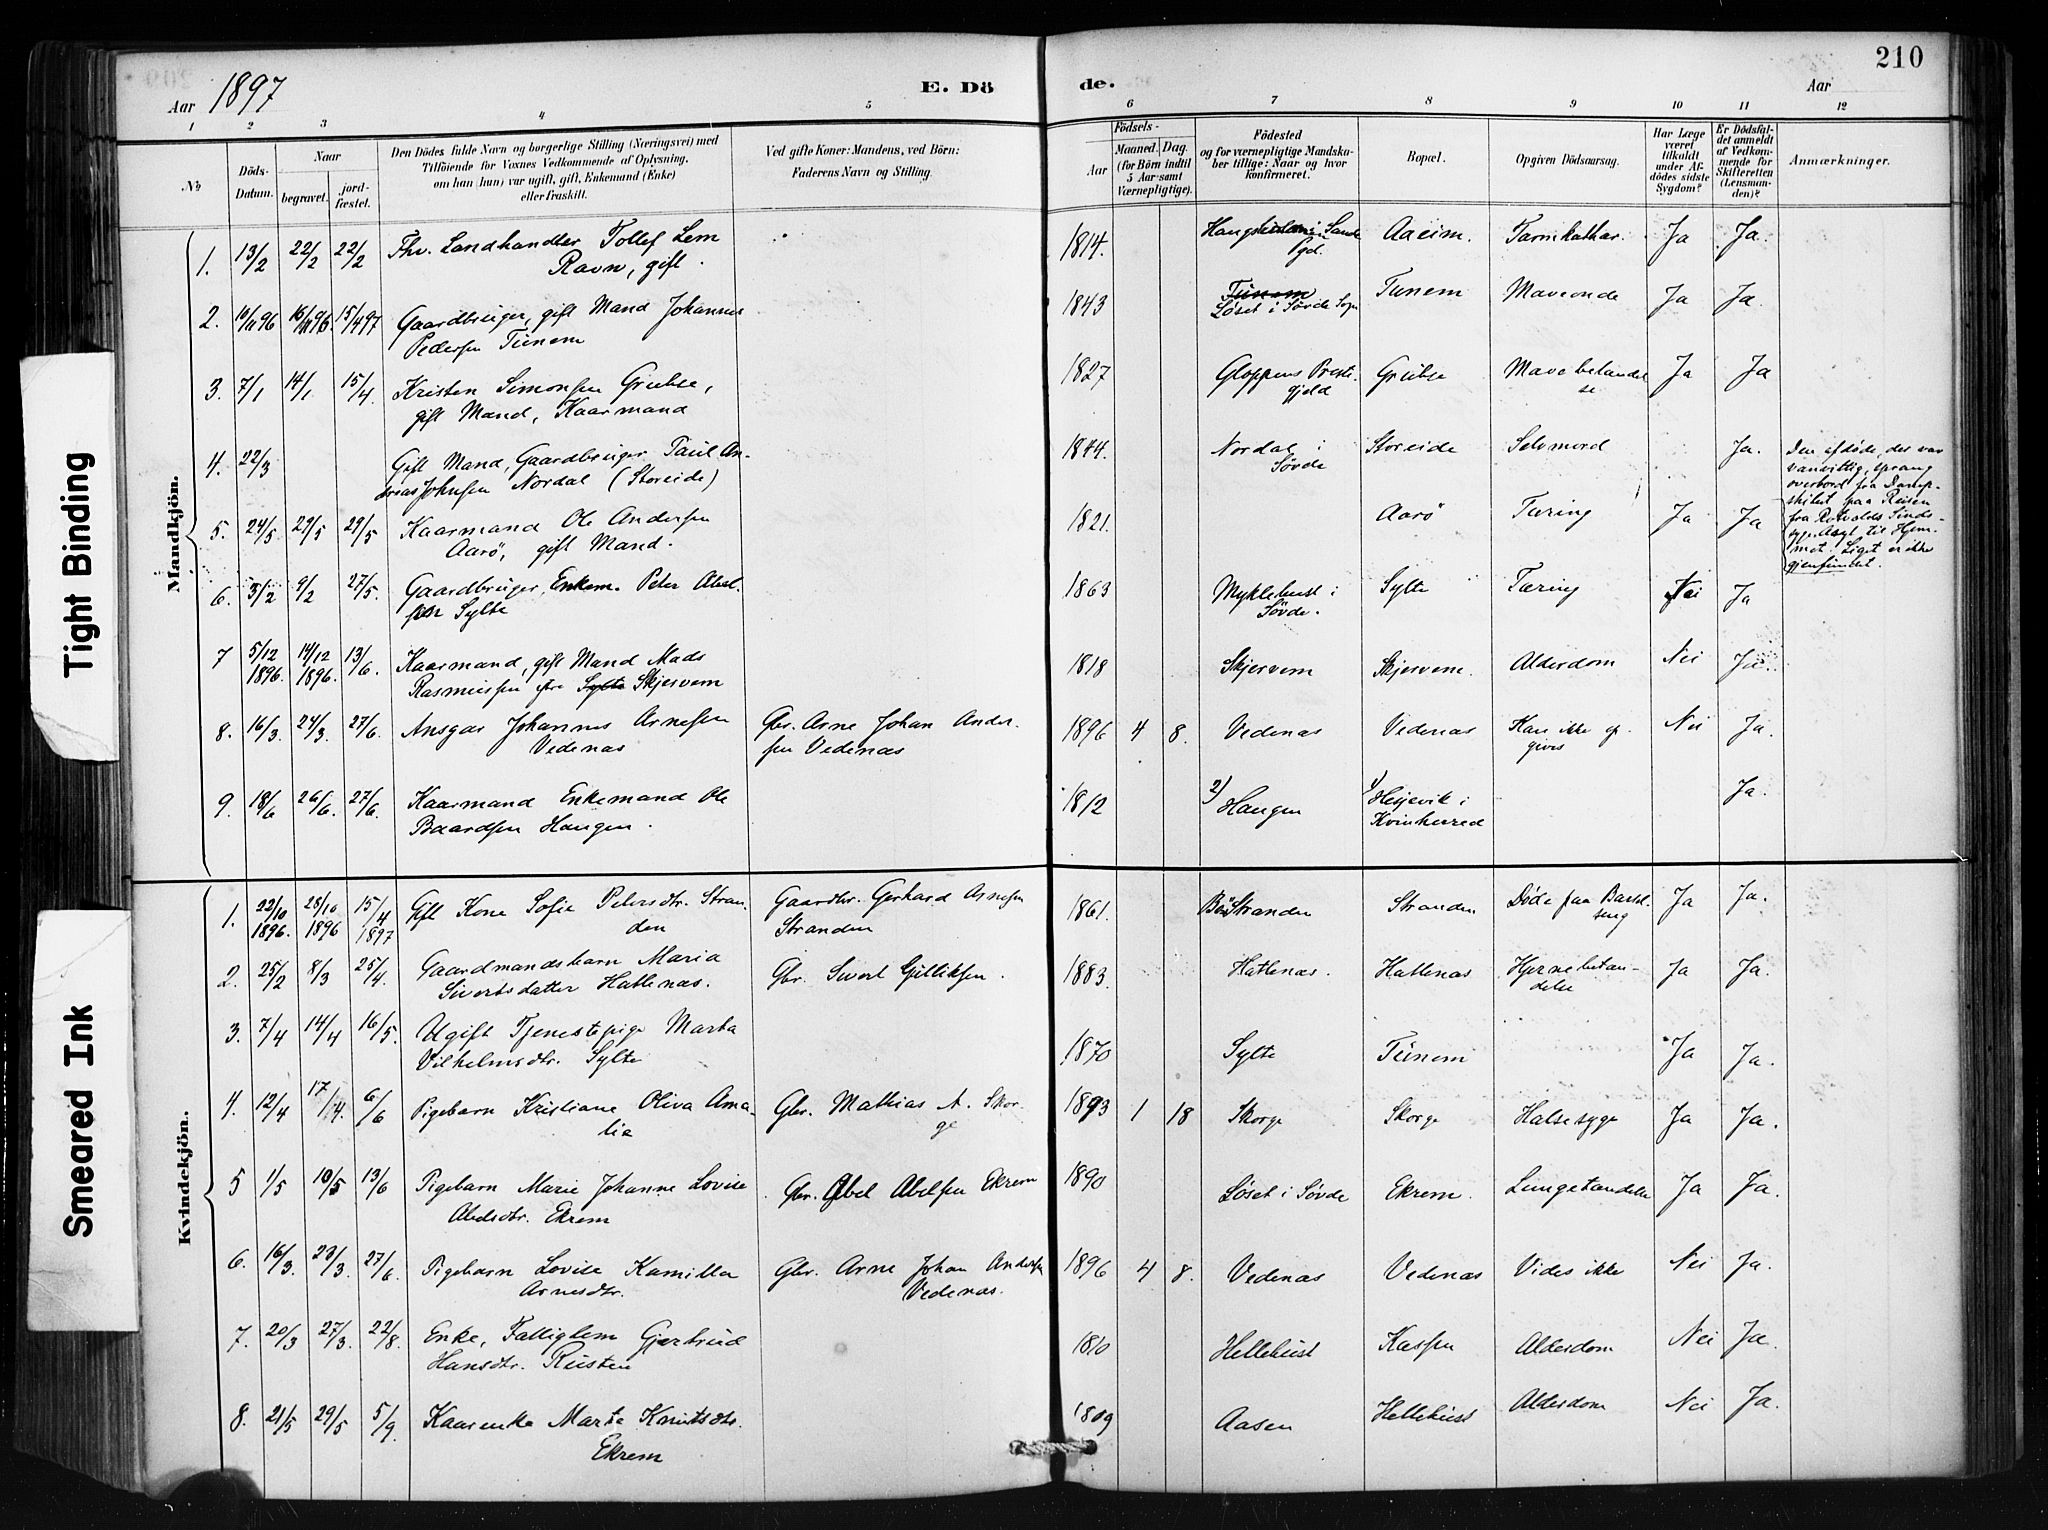 210
Aar 1897
E. Dö
de.
Aar
1 2 3 4 5 6 7 8 9 10 11 12
No
Döds-
Datum.
Naar
begravet.
jord-
fæstet.
Den Dödes fulde Navn og borgerlige Stilling (Næringsvei) med
Tilföiende for Voxnes Vedkommende af Oplysning,
om han (hun) var ugift, gift, Enkemand (Enke)
eller fraskilt.
Ved gifte Koner: Mandens, ved Börn:
Faderens Navn og Stilling.
Födsels-
Aar
Maaned. Dag.
(for Börn indtil
5 Aar samt
Værnepligtige).
Födested
og for værnepligtige Mandska-
ber tillige: Naar og hvor
konfirmeret.
Bopæl.
Opgiven Dödsaarsag.
Har Læge
været
tilkaldt
under Af-
dödes sidste
Sygdom?
Er Dödsfal-
det anmeldt
af Vedkom-
mende for
Skifteretten
(Lensman-
den)?
Anmærkninger.
Mandkjön.
1. 13/2 22/2 22/2 Fhv. Landhandler Tollef Lem 1814. Sande Aaeim. Tarmkathar. Ja Ja.
Ravn, gift. Pgd.
2. 10/11 96 16/11 96. 15/4 97 Gaardbruger, gift Mand Johannes 1843 Tunem Tunem Maveonde Ja Ja.
Pedersen Tunem Løset i Søvde Sogn
3. 7/1 14/1 15/4. Kristen Simonsen Grubse, 1827 Gloppens Preste- Grubse Mavebetændel- Ja Ja
gift Mand, Kaarmand gjeld se
4. 22/3 Gift Mand, Gaardbruger Paul An- 1844. Nordal i Storeide Selvmord Ja.
dreas Johnsen Nordal (Storeide) Søvde
Den afdøde, der var
vansittig, sprang
overbord fra Damp-
skibet paa Reisen
fra Rotvolds Sinds-
syge Asyl til Hjem-
met. Liget er ikke
gjenfundet.
5. 24/5 29/5 29/5 Kaarmand Ole Andersen 1821. Aarö Tæring Ja Ja
Aarö, gift Mand.
6. 3/2 9/2 27/5. Gaardbruger, Enkem. Peter Abel- 1863 Myklebust i Sylte Tæring Nei Ja
sen Sylte Søvde.
7 5/12 14/12 13/6. Kaarmand, gift Mand Mads 1818 Skjervem Skjervem. Alderdom Nei Ja.
1896. 1896. Rasmussen Sylte Skjervem
8. 16/3. 24/3. 27/6. Ansgar Johannes Arnesen Gbr. Arne Johan Ander- 1896 4 8. Vedenæs Vedenæs Kan ikke op- Nei Ja.
Vedenæs sen Vedenæs gives
9. 18/6 26/6. 27/6. Kaarmand Enkemand Ole 1812 2) Haugen 1) Hesjevik i Ja.
Baardsen Haugen. Kvinherred
Kvindekjön.
1. 22/10 28/10 15/4 Gift Kone Sofie Petersdtr. Stran- Gaardbr. Gerhard Arnesen 1861. Stranden Stranden Døde paa Barsel- Ja Ja.
1896. 1896 1897 den Stranden seng
2. 25/2 8/3 25/4. Gaardmandsbarn Maria Gbr. Sivert Gulliksen. 1883. Hatlenæs. Hatlenæs Hjernebetæn- Ja Ja.
Sivertsdatter Hatlenæs. delse
3. 7/4 14/4 16/5. Ugift Tjenestepige Marta 1870 Sylte Tunem Ja Ja.
Vilhelmsdtr. Sylte
4. 12/4 17/4. 6/6 Pigebarn Kristiane Oliva Ama- Gbr. Mathias A. Skor- 1893 1 18 Skorge Skorge Halsesyge Ja Ja.
lie ge
5 1/5 10/5 13/6 Pigebarn Marie Johanne Lovise Gbr. Abel Abelsen Ekrem 1890 Løset i Søvde Ekrem. Ja Ja.
Abelsdtr. Ekrem
6. 16/3. 23/3. 27/6 Pigebarn Lovise Kamilla Gbr. Arne Johan Andersen 1896 4 8. Vedenæs Vedenæs Vides ikke Nei Ja.
Arnesdtr. Vedenæs.
7. 20/3 27/3. 22/8. Enke, Fattiglem Gjertrud 1810 Hellebust Kaspen Alderdom Nei Ja.
Hansdtr. Rusten
8. 21/5 29/5 5/9. Kaarenke Marte Knutsdtr. 1809 Aasen Hellebust Alderdom Nei Ja.
Ekrem
Tight Binding
Smeared Ink